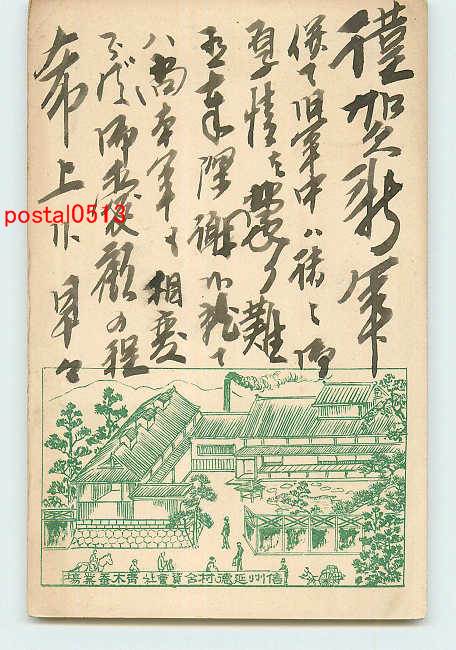 謹賀新年
併て旧年中ハ種々御
厚情を蒙り難
有奉深謝候就て
ハ尚本年も相変
らず御愛顧の程
希上候 早々
postal0513
信州延德村合資會社青木蚕業場